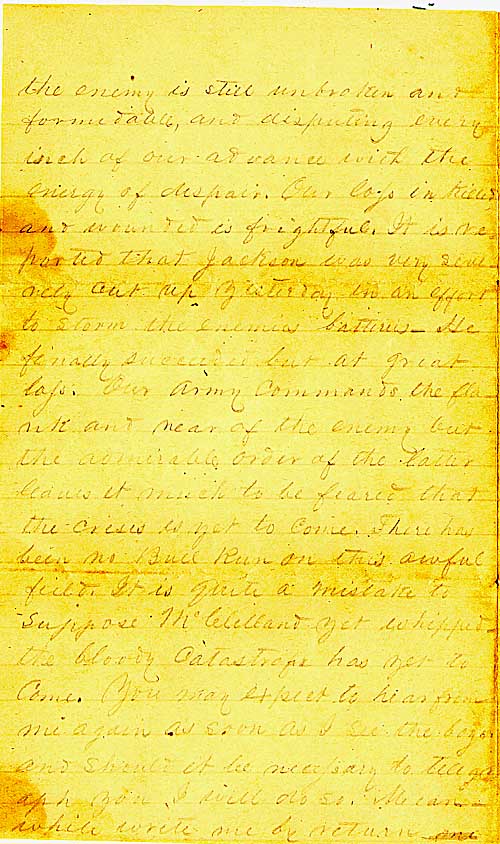 the enemy is still unbroken and
formidable, and disputing every
inch of our advance with the
energy of despair. Our loss in killed
and wounded is frightful. It is re
ported that Jackson was very seve
rely cut up yesterday in an effort
to storm the enemies batteries - He
finally succeeded but at great
loss. Our army commands the fla
nk and rear of the enemy but
the admirable order of the latter
leaves it much to be feared that
the crisis is yet to come. There has
been no Bull Run on this awful
field. It is quite a mistake to
suppose McClelland yet whipped -
the bloody catastrope has yet to
come. You may expect to hear from
me again as soon as I see the boys
and should it be necessary to telegr
aph you I will do so. Mean -
while write me by return